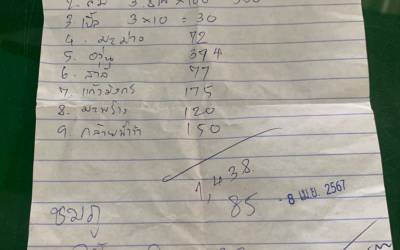 2. ส้ม 3.5 × 100 350
3. เป็ด 3×10 = 30
4. มะม่วง 72
5. องุ่น 374
6. สาลี่ 77
7. แก้วมังกร 175
8. มะพร้าว 120
9. กล้วยน้ำว้า 150
1,438.
85 - 8 เม.ย. 2567
ชมภู